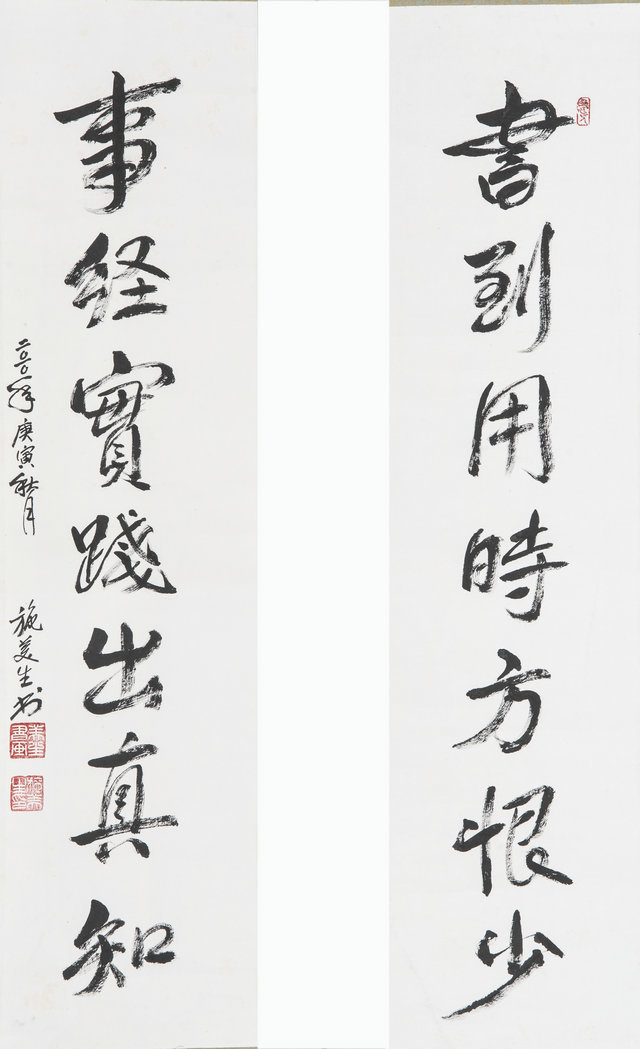 書到用時方恨少
事経實踐出真知
二〇一〇年庚寅秋月
施美生书